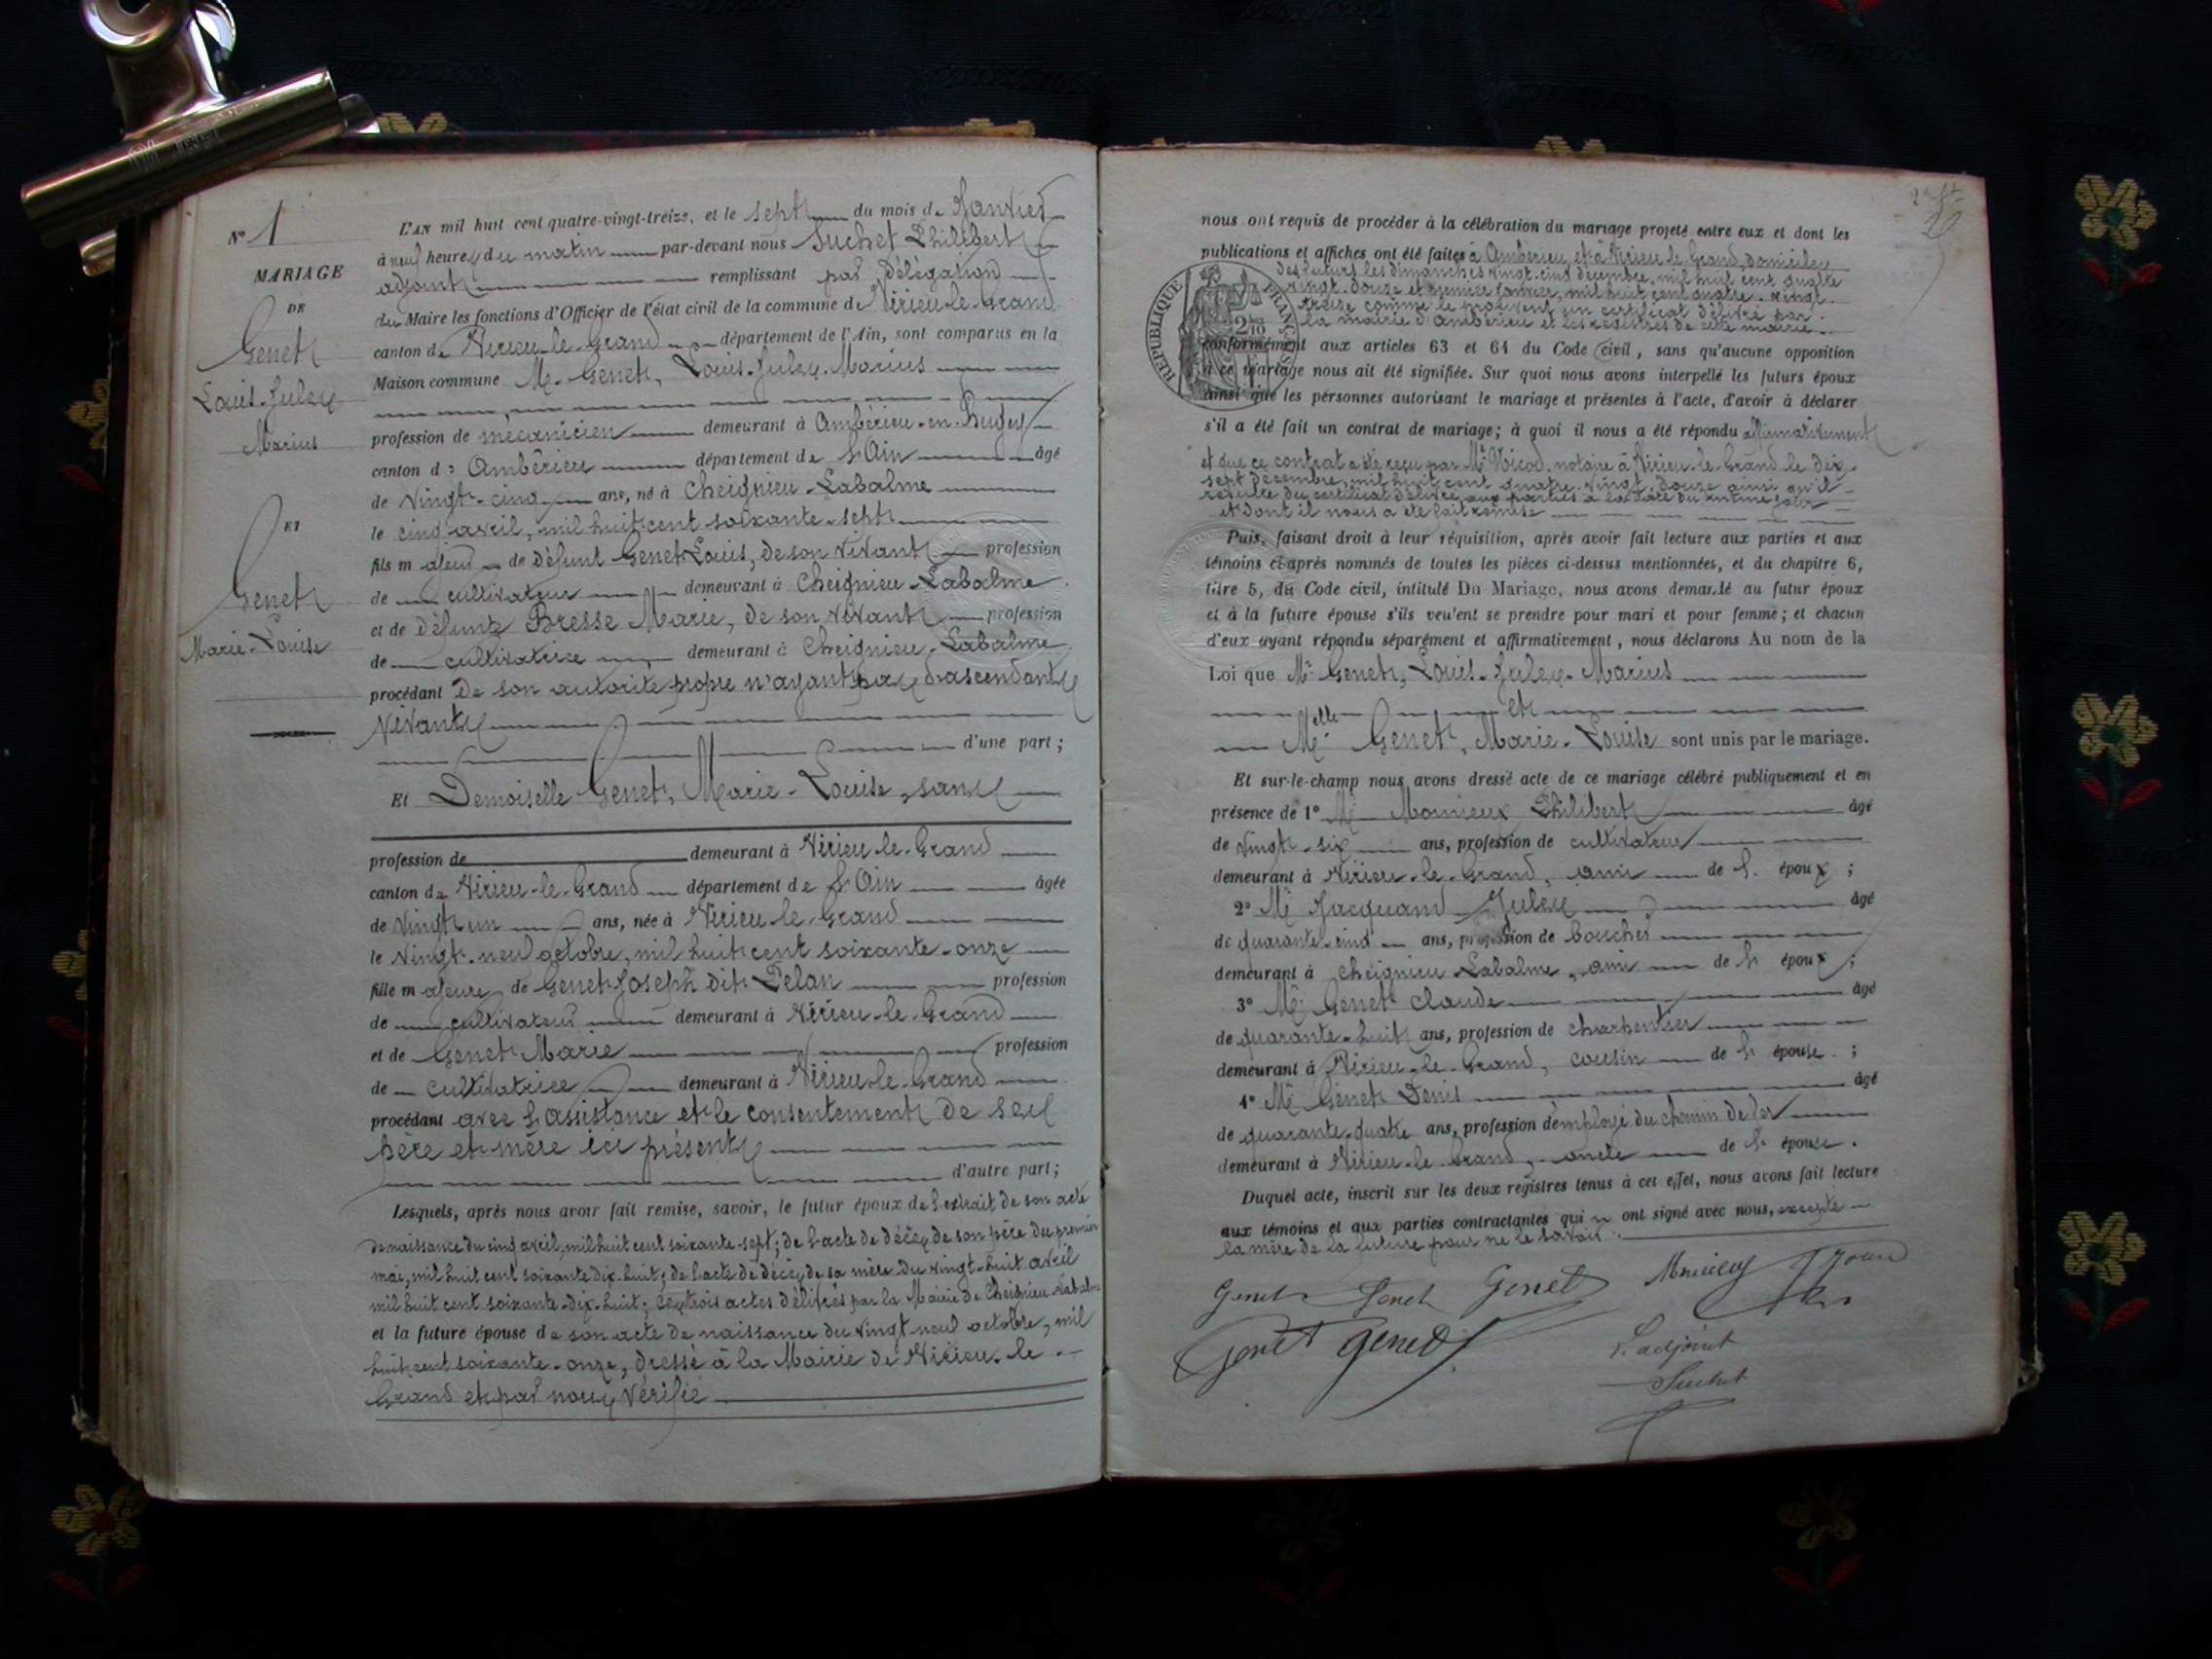 N° 1
MARIAGE
DE
Genet
Louis-Jules
Marius
ET
Genet
Marie-Louise
L'AN mil huit cent quatre-vingt-treize, et le sept du mois de Janvier
à neuf heures du matin par-devant nous Suchet Philibert
adjoint remplissant par délégation
du Maire les fonctions d'Officier de l'état civil de la commune de Virieu-le-Grand
canton de Virieu-le-Grand département de l'Ain, sont comparus en la
Maison commune Mr Genet, Louis-Jules-Marius
profession de mécanicien demeurant à Ambérieu-en-Bugey
canton d' Ambérieu département de l'Ain âgé
de vingt-cinq ans, né à Cheignieu-Labalme
le cinq avril, mil huit cent soixante-sept
fils majeur de défunt Genet Louis, de son vivant profession
de cultivateur demeurant à Cheignieu-Labalme
et de défunte Bresse Marie, de son vivant profession
de cultivatrice demeurant à Cheignieu-Labalme
procédant de son autorité propre n'ayant pas d'ascendants
vivants
d'une part ;
Et Demoiselle Genet, Marie-Louise, sans
profession de demeurant à Virieu-le-Grand
canton de Virieu-le-Grand département de l'Ain âgée
de vingt un ans, née à Virieu-le-Grand
le vingt-neuf octobre, mil huit cent soixante-onze
fille majeure de Genet Joseph dit Pelan profession
de cultivateur demeurant à Virieu-le-Grand
et de Genet Marie profession
de cultivatrice demeurant à Virieu-le-Grand
procédant avec l'assistance et le consentement de ses
père et mère ici présents
d'autre part ;
Lesquels, après nous avoir fait remise, savoir, le futur époux de l'extrait de son acte
de naissance du cinq avril, mil huit cent soixante-sept; de l'acte de décès de son père du premier
mai, mil huit cent soixante dix-huit; de l'acte de décès de sa mère du vingt-huit avril
mil huit cent soixante-dix-huit; ces trois actes délivrés par la Mairie de Cheignieu-Labal-
et la future épouse de son acte de naissance du vingt-neuf octobre, mil
huit cent soixante-onze, dressé à la Mairie de Virieu-le-
Grand et par nous vérifié
nous ont requis de procéder à la célébration du mariage projeté entre eux et dont les
publications et affiches ont été faites à Ambérieu et à Virieu-le-Grand, domiciles
des futurs les dimanches vingt-cinq décembre, mil huit cent quatre
vingt-douze et premier janvier, mil huit cent quatre-vingt-
treize comme le prouvent un certificat délivré par
la mairie d'Ambérieu et les registres de cette mairie.
RÉPUBLIQUE FRANÇAISE
conformément aux articles 63 et 64 du Code civil, sans qu'aucune opposition
à ce mariage nous ait été signifiée. Sur quoi nous avons interpellé les futurs époux
ainsi que les personnes autorisant le mariage et présentes à l'acte, d'avoir à déclarer
s'il a été fait un contrat de mariage; à quoi il nous a été répondu affirmativement
et que ce contrat a été reçu par Me Nicod notaire à Virieu-le-Grand le dix-
sept décembre, mil huit cent quatre-vingt-douze ainsi qu'il
résulte du certificat délivré aux parties à la date du même jour
et dont il nous a été fait remise
Puis, faisant droit à leur réquisition, après avoir fait lecture aux parties et aux
témoins ci-après nommés de toutes les pièces ci-dessus mentionnées, et du chapitre 6,
titre 5, du Code civil, intitulé Du Mariage, nous avons demandé au futur époux
et à la future épouse s'ils veulent se prendre pour mari et pour femme; et chacun
d'eux ayant répondu séparément et affirmativement, nous déclarons Au nom de la
Loi que Mr Genet, Louis-Jules-Marius
et
Melle Genet, Marie-Louise sont unis par le mariage.
Et sur-le-champ nous avons dressé acte de ce mariage célébré publiquement et en
présence de 1° Mr Monieux Philibert âgé
de vingt-six ans, profession de cultivateur
demeurant à Virieu-le-Grand, ami de l' époux ;
2° Mr Jacquand Jules âgé
de quarante-cinq ans, profession de boucher
demeurant à Cheignieu-Labalme, ami de l' époux ;
3° Mr Genet Claude âgé
de quarante-huit ans, profession de charpentier
demeurant à Virieu-le-Grand, cousin de l' épouse. ;
4° Mr Genet Denis âgé
de quarante-quatre ans, profession d'employé du chemin de fer
demeurant à Virieu-le-Grand, oncle de l' épouse.
Duquel acte, inscrit sur les deux registres tenus à cet effet, nous avons fait lecture
aux témoins et aux parties contractantes qui ont signé avec nous, excepté
la mère de la future pour ne le savoir.
Genet Genet Genet
Genet Genet
L'adjoint
Suchet